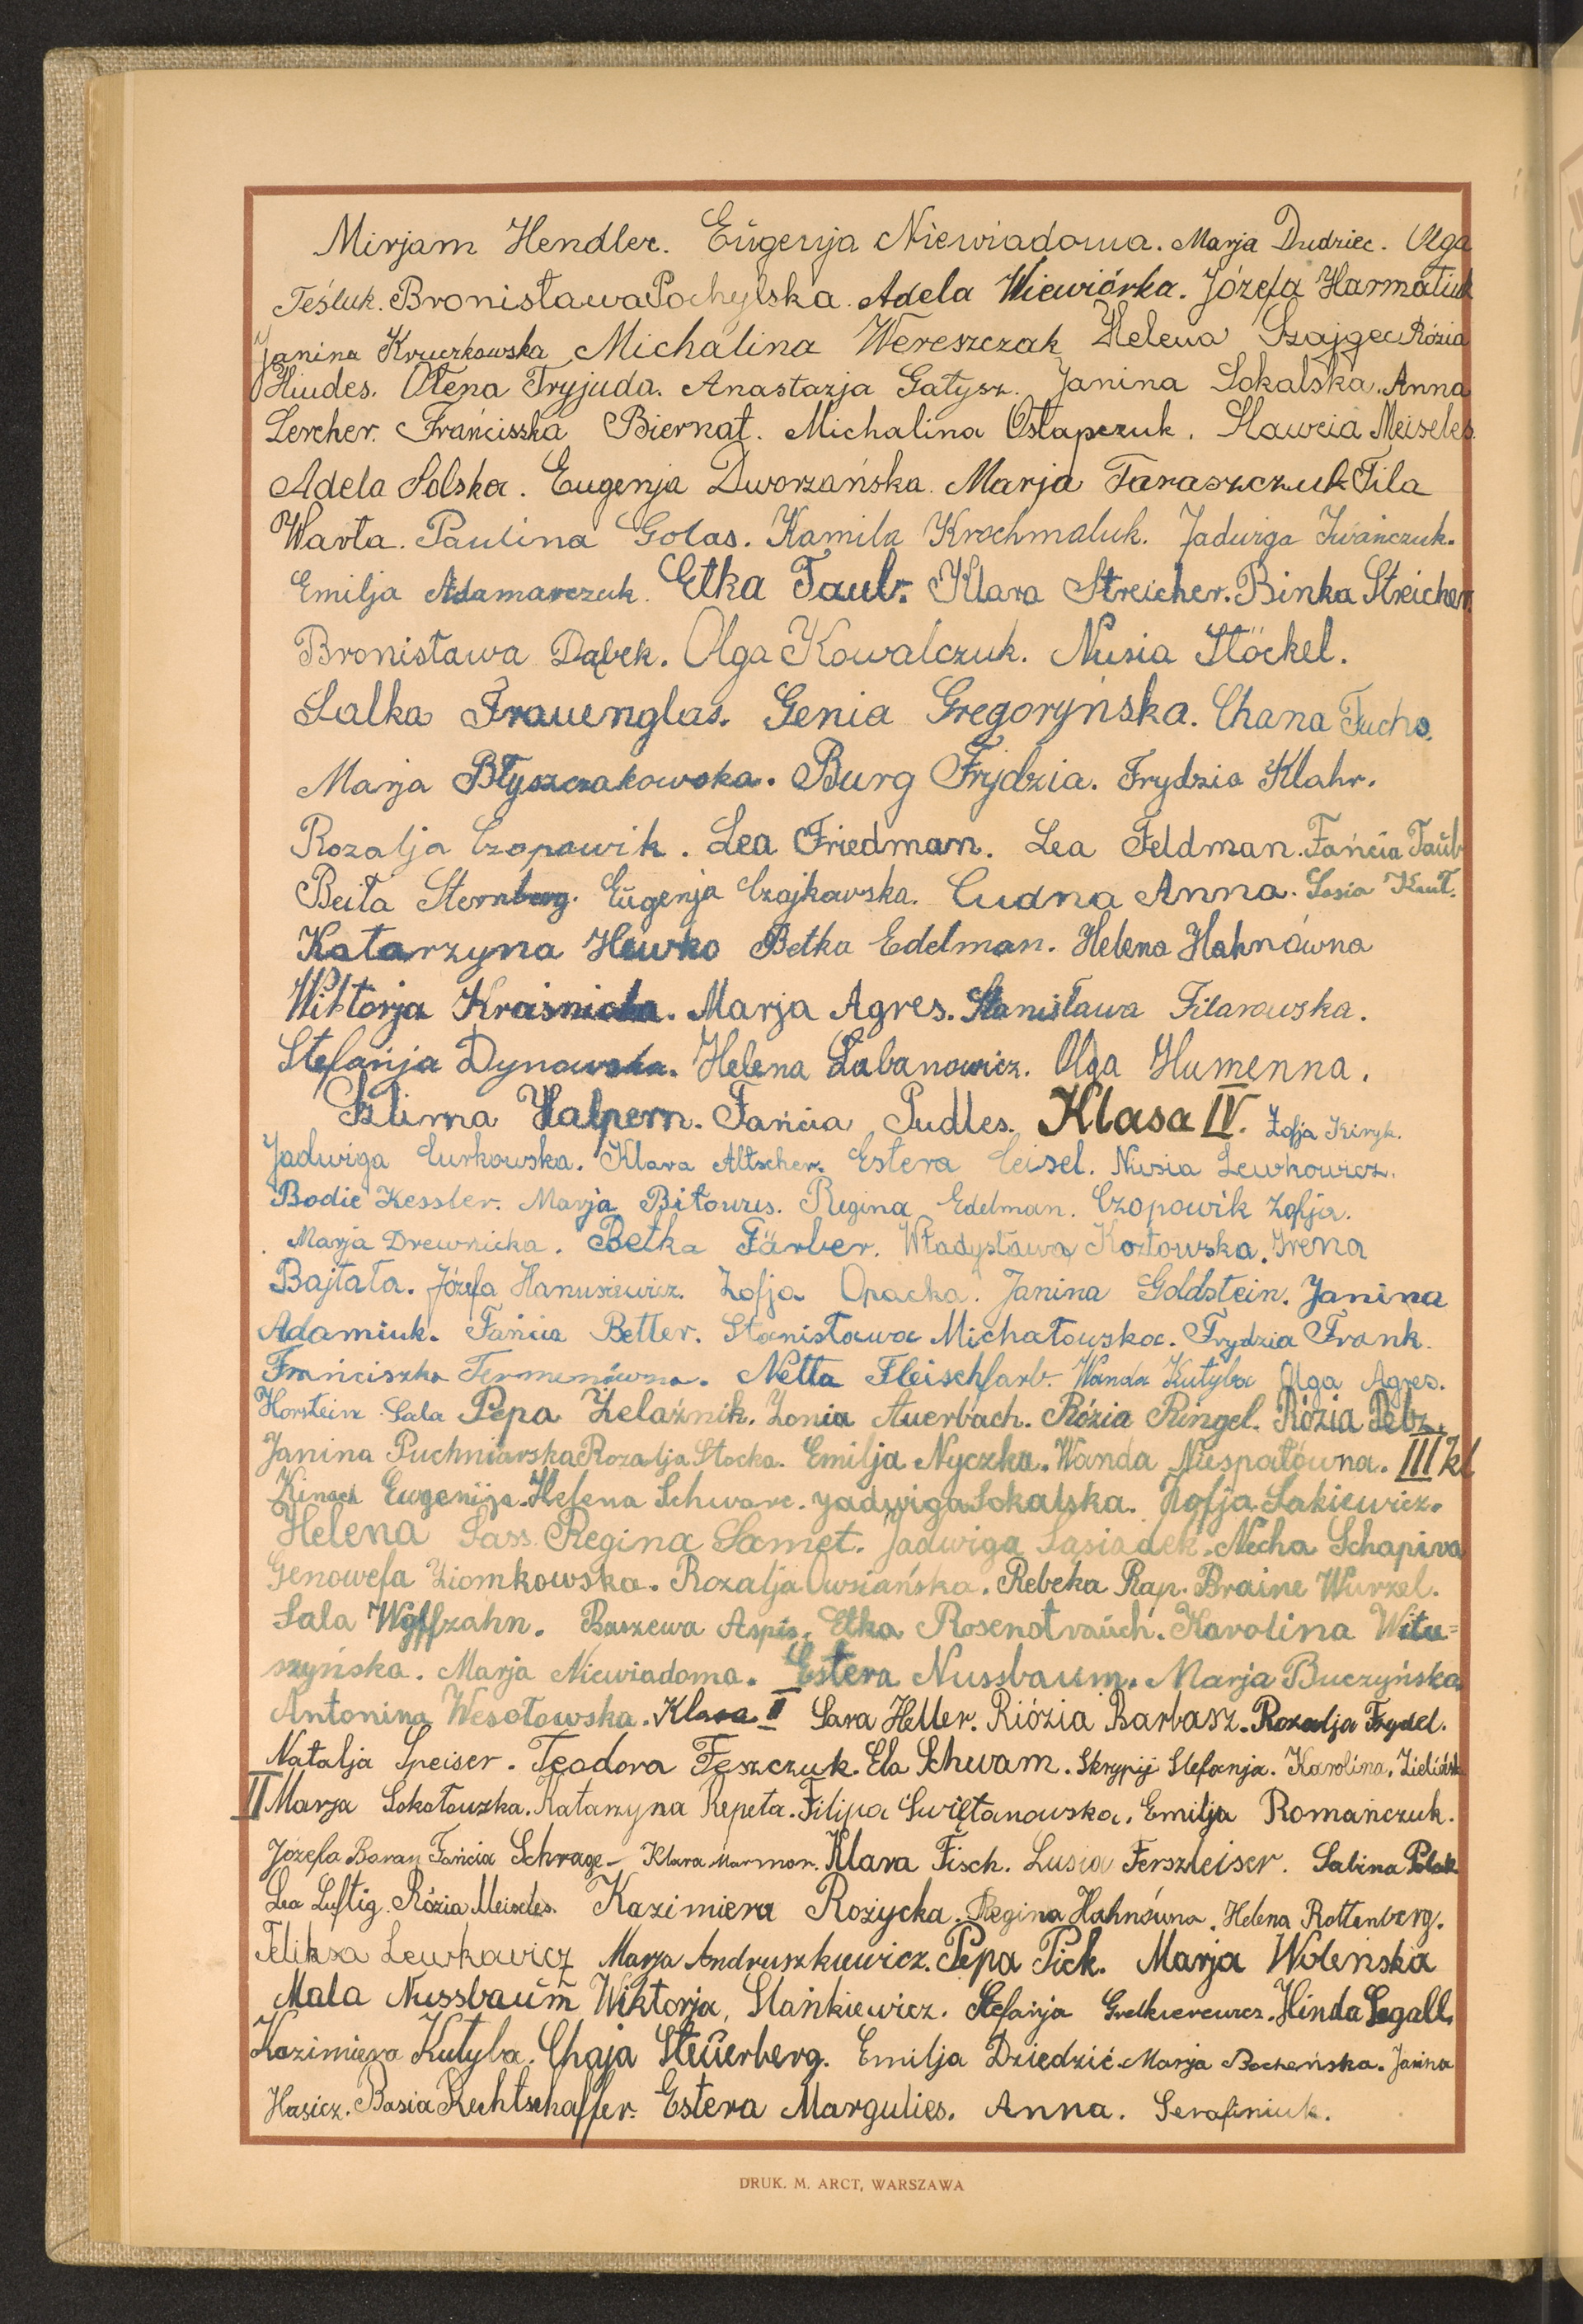 Mirjam Hendler. Eugenja Niewiadoma. Marja Dudziec. Olga
Teśluk. Bronisława Pochylska. Adela Wiewiórka. Józefa Harmatiuk
Janina Kruczkowska Michalina Wereszczak Helena Szajgec Rózia
Hindes. Ołena Tryjuda. Anastazja Gałysz. Janina Sokalska. Anna
Lercher. Franciszka Biernat. Michalina Ostapczuk. Sławcia Meiseles.
Adela Solska. Eugenja Dworzańska. Marja Taraszczuk Tila
Warta. Paulina Golas. Kamila Krochmaluk. Jadwiga Iwańczuk.
Emilja Adamarczuk. Etka Taub. Klara Streicher. Binka Streicher.
Bronisława Dąbek. Olga Kowalczuk. Nusia Stöckel.
Salka Frauenglas. Genia Gregoryńska. Chana Fuchs.
Marja Błyszczakowska. Burg Frydzia. Frydzia Klahr.
Rozalja Czopowik. Lea Friedman. Lea Feldman. Fańcia Taub
Beita Sternberg. Eugenja Czajkowska. Cudna Anna. Sosia
Katarzyna Hewko Betka Edelman. Helena Hahnówna
Wiktorja Kraśnicka. Marja Agres. Stanisława Filarowska.
Stefanja Dynowska. Helena Łabanowicz. Olga Humenna.
Szlima Halpern. Fańcia Pudles. Klasa IV. Zofja Kiryk.
Jadwiga Curkowska. Klara Altscher. Estera Ceisel. Nusia Lewkowicz.
Bodie Kessler. Marja Bitouus. Regina Edelman. Czopowik Zofja.
Marja Drewnicka. Betka Färber. Władysława Kozłowska. Irena
Bajtała. Józefa Hanusiewicz. Zofja Opacka. Janina Goldstein. Janina
Adamiuk. Fańcia Better. Stanisława Michałowska. Frydzia Frank.
Franciszka Fermenówna. Netta Fleischfarb. Wanda Kutyba Olga Agres.
Horstein Sala Pepa Żelaźnik. Zonia Auerbach. Rózia Ringel. Rózia Pebz.
Janina Puchniarska Rozalja Stocka. Emilja Nyczka. Wanda Niespałówna. III kl
Kinach Ewgenija. Helena Schwarc. Jadwiga Sokalska. Zofja Sakiewicz.
Helena Sass. Regina Samet. Jadwiga Sąsiadek. Necha Schapira
Genowefa Ziomkowska. Rozalja Owsiańska. Rebeka Rap. Braine Wurzel.
Sala Wolfzahn. Baszewa Aspis. Etka Rosenstrauch. Karolina Witu=
szyńska. Marja Niewiadoma. Estera Nussbaum. Marja Buczyńska
Antonina Wesołowska. Klasa II Sara Heller. Riózia Barbasz. Rozalja Frydel.
Natalja Speiser. Teodora Feszczuk. Ela Schwam. Skrypij Stefanja. Karolina. Zielińska
II Marja Sokołowska. Katarzyna Repeta. Filipa Swiętanowska. Emilja Romańczuk.
Józefa Baran Fańcia Schrage - Klara Marmor. Klara Fisch. Lusia Ferszleiser. Sabina Polak
Lea Luftig. Rózia Meiseles. Kazimiera Rożycka. Regina Hahnówna. Helena Rottenberg.
Feliksa Lewkowicz Marja Andruszkiewicz. Pepa Pick. Marja Woleńska
Mala Nussbaum Wiktorja, Stankiewicz. Stefanja Hinda Segall.
Kazimiera Kutyba. Chaja Steuerberg. Emilja Dziedzić. Marja Bocheńska. Janina
Hasicz. Basia Rechtschaffer. Estera Margulies. Anna. Serafiniuk.
DRUK. M. ARCT, WARSZAWA